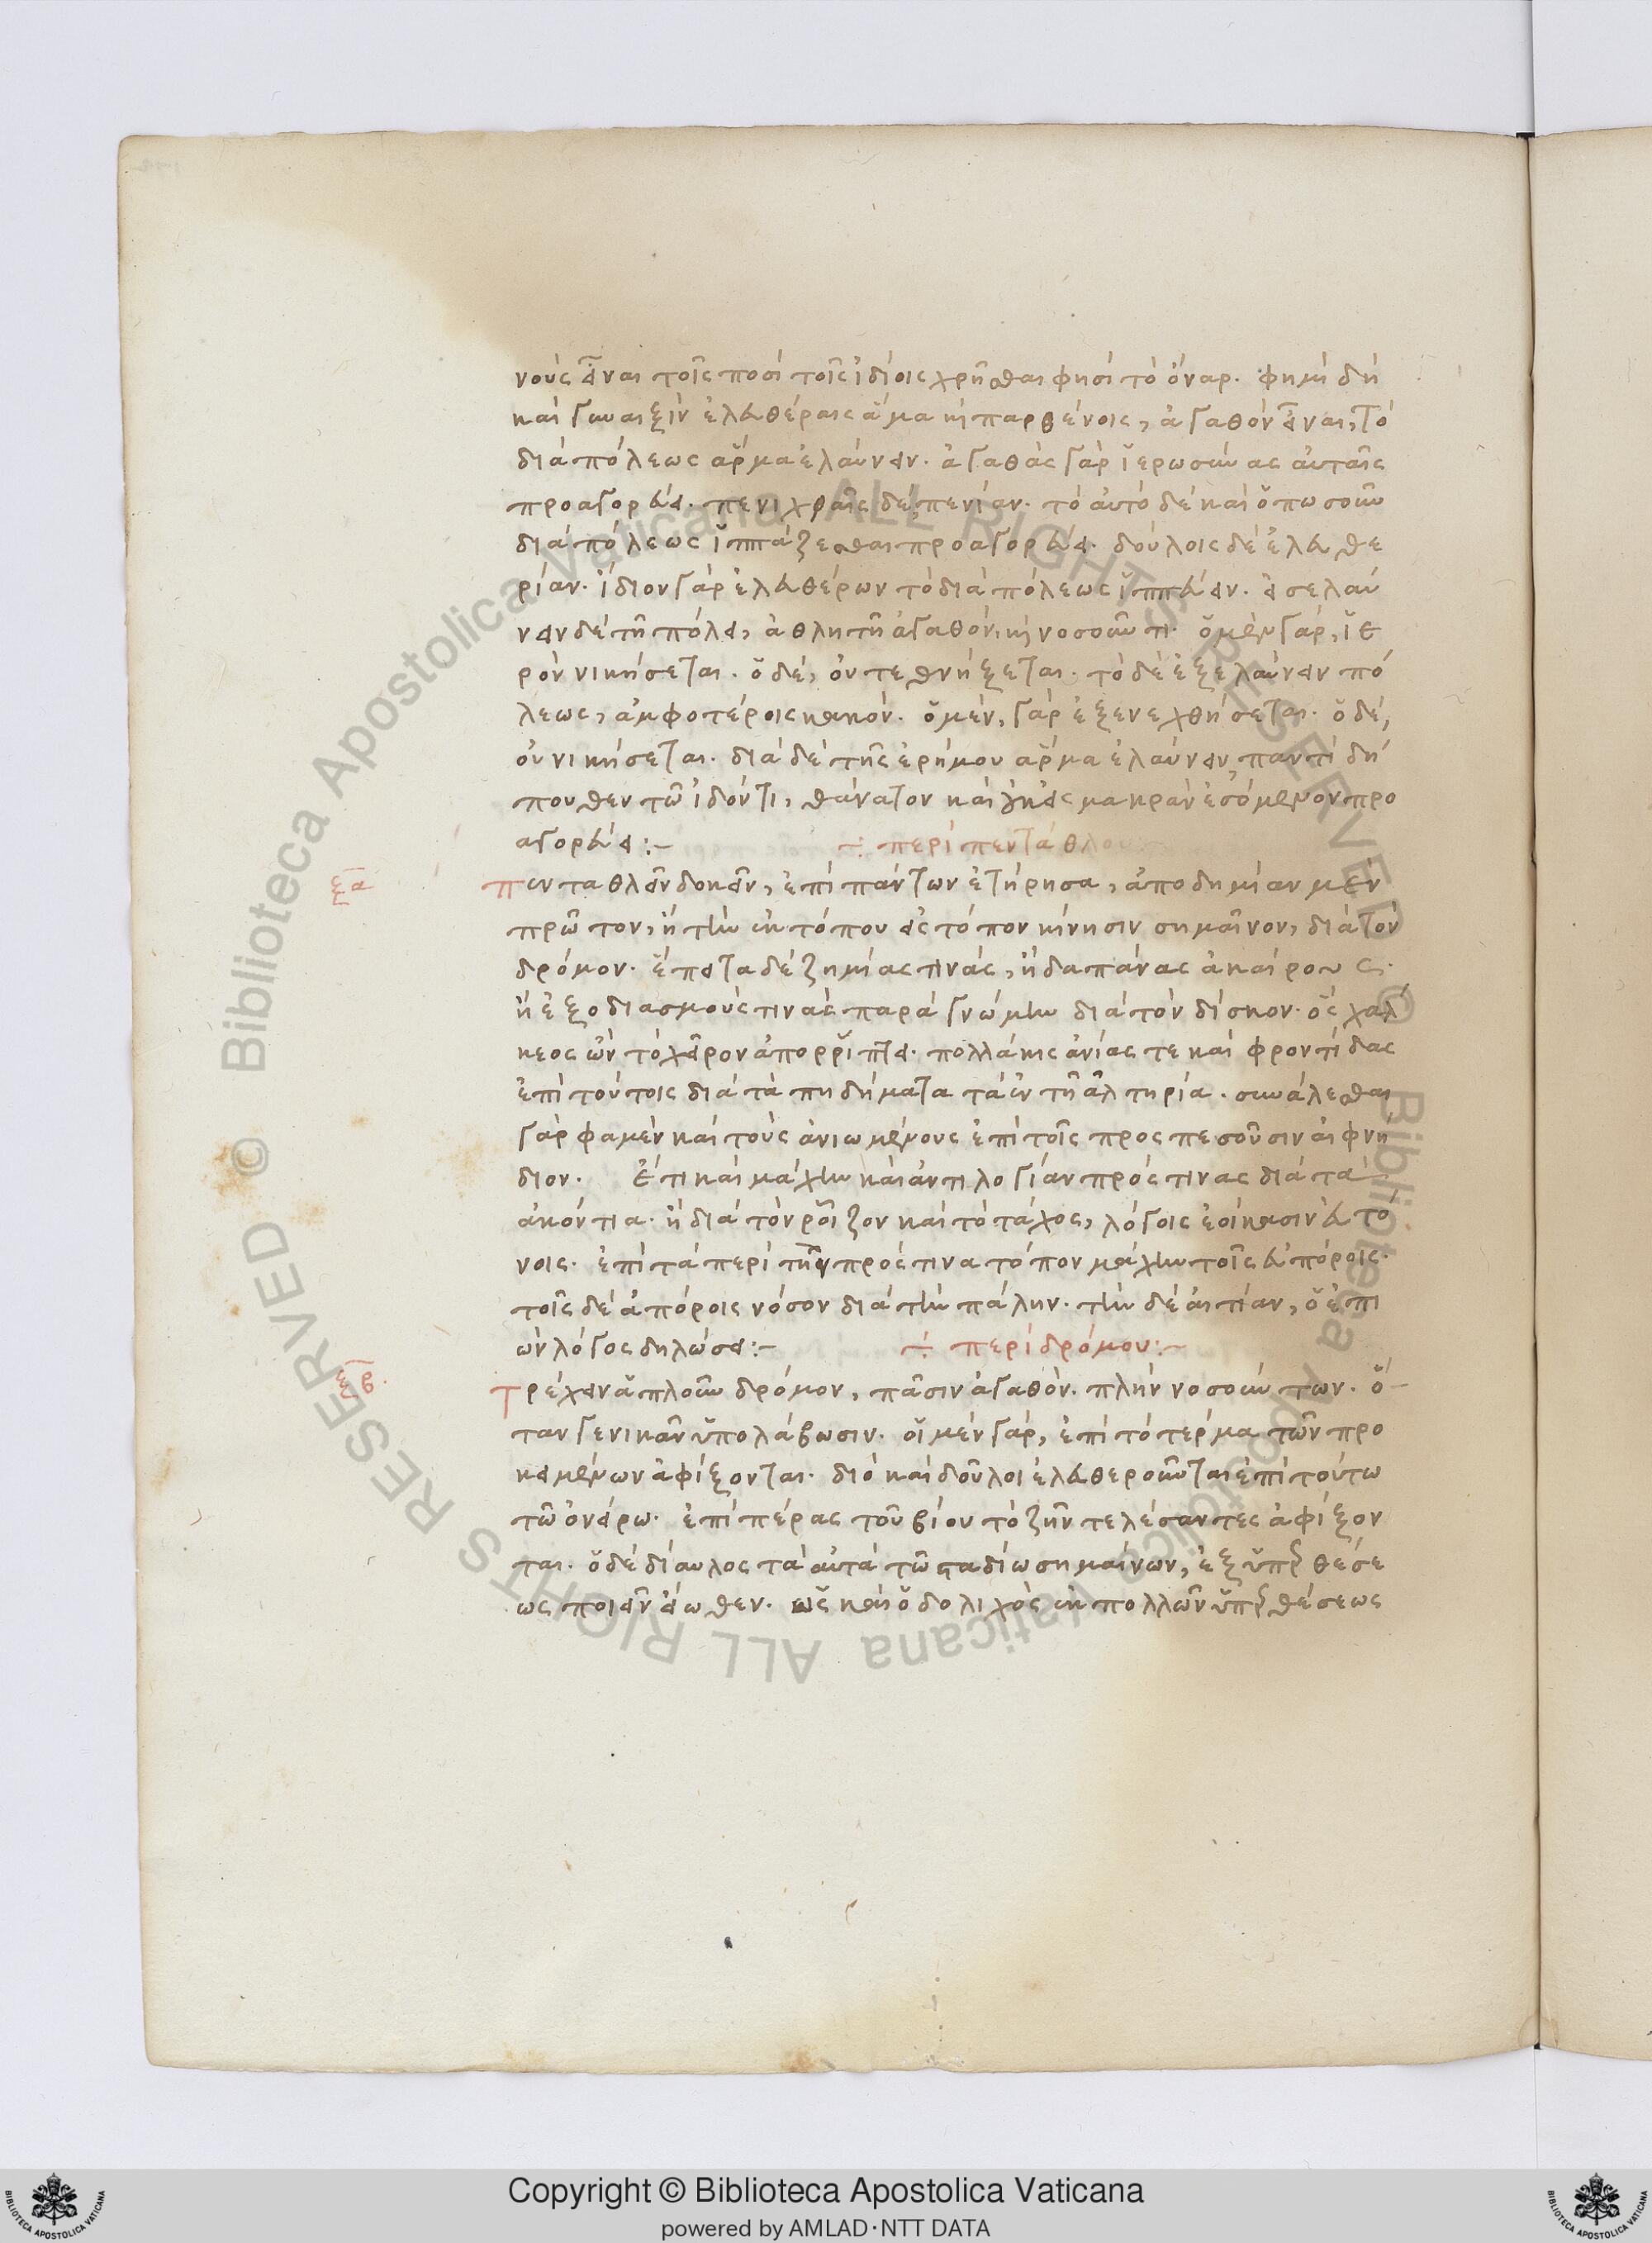 νοὺς εἶναι τοῖς ποσὶ τοῖς ἰδίοις χρῆσθαι φησὶ τὸ ὄναρ. φημὶ δὴ
καὶ γυναιξὶν ἐλευθέραις ἅμα κὴ παρθένοις, ἀγαθὸν εἶναι, τὸ
διὰ πόλεως ἅρμα ἐλαύνειν. ἀγαθὰς γὰρ ἱερωσύνας αὐταῖς
προαγορεύει. πενιχραῖς δέ, πενίαν. τὸ αὐτὸ δὲ καὶ ὁπωσοῦν
διὰ πόλεως ἱππάζεσθαι προαγορεύει. δούλοις δὲ ἐλευθε
ρίαν. ἴδιον γὰρ ἐλευθέρων τὸ διὰ πόλεως ἱππεύειν. εἰσελαύ
νειν δὲ τῆ πόλει, ἀθλητῆ ἀγαθόν, κὴ νοσοῦντι. ὁ μὲν γὰρ, ἱε
ρὸν νικήσεται. ὁ δέ, οὐ τεθνήξεται. τὸ δὲ ἐξελαύνειν πό
λεως, ἀμφοτέροις κακόν. ὁ μὲν, γὰρ ἐξενεχθήσεται. ὁ δέ,
οὐ νικήσεται. διὰ δὲ τῆς ἐρήμου ἅρμα ἐλαύνειν, παντὶ δή
πουθεν τῶ ἰδόντι, θάνατον καὶ οὐκ εἰς μακρὰν ἐσόμενον προ
αγορεύει :–
÷ περὶ πεντάθλου
ξα
πενταθλεῖν δοκεῖν, ἐπὶ πάντων ἐτήρησα, ἀποδημίαν μὲν
πρῶτον, ἢ τὴν ἐκ τόπου εἰς τόπον κίνησιν σημαῖνον, διὰ τὸν
δρόμον. ἔπειτα δὲ ζημίας τινάς, ἢ δαπάνας ἀκαίρους.
ἢ ἐξοδιασμοὺς τινὰς παρὰ γνώμην διὰ τὸν δίσκον. ὃς χάλ
κεος ὢν τὸ χεῖρον ἀπορρίπτει. πολλάκις ἀνίας τε καὶ φροντίδας
ἐπὶ τούτοις διὰ τὰ πηδήματα τὰ ἐν τῆ ἁλτηρία. συνάλεσθαι
γὰρ φαμὲν καὶ τοὺς ἀνιωμένους ἐπὶ τοῖς προςπεσοῦσιν αἰφνί
διον. ἔτι καὶ μάχην καὶ ἀντιλογίαν πρός τινας διὰ τὰ
ἀκόντια. ἢ διὰ τὸν ῥοῖζον καὶ τὸ τάχος, λόγοις ἐοίκασιν εὐτό
νοις. ἐπὶ τὰ περὶ τὴν πρός τινα τόπον μάχην τοῖς εὐπόροις.
τοῖς δὲ ἀπόροις νόσον διὰ τὴν πάλην. τὴν δὲ αἰτίαν, ὁ ἐπι
ὼν λόγος δηλώσει :–
÷ περὶ δρόμου :–
ξβ.
Τρέχειν ἁπλοῦν δρόμον, πᾶσιν ἀγαθὸν. πλὴν νοσούντων. ὅ–
ταν γενικᾶν ὑπολάβωσιν. οἱ μὲν γὰρ, ἐπὶ τὸ τέρμα τῶν προ
κειμένων ἀφίξονται. διὸ καὶ δοῦλοι ἐλευθεροῦνται ἐπὶ τούτω
τῶ ὀνείρω. ἐπὶ πέρας τοῦ βίου τὸ ζῆν τελέσαντες ἀφίξον
ται. ὁ δὲ δίαυλος τὰ αὐτὰ τῶ σταδίω σημαίνων, ἐξ ὑπερθέσε
ως ποιεῖν εἴωθεν. ὡς καὶ ὁ δολιχὸς ἐκ πολλῶν ὑπερθέσεως
Copyright © Biblioteca Apostolica Vaticana
powered by AMLAD·NTT DATA